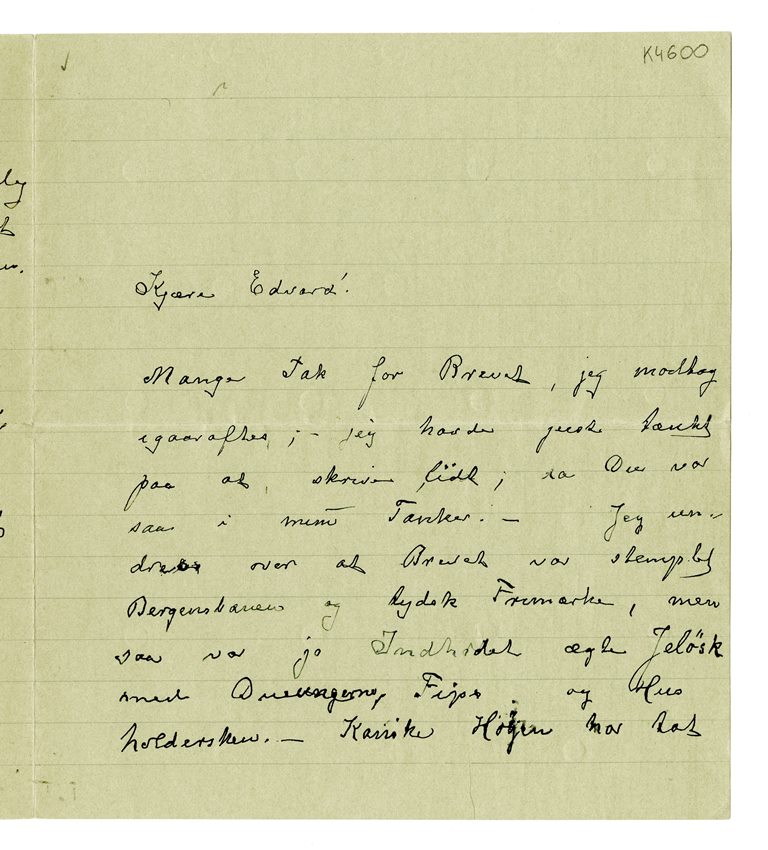 K4600
Kjære Edvard!
Mange Tak for Brevet, jeg modtog
igaaraftes, ; – jeg havde juste tænkt
paa at skrive lidt, da Du var
saa i mine Tanker. – Jeg un-
dres over at Brevet var stemplet
Bergensbanen og tydsk Frimærke, men
saa var jo Indholdet ægte Jeløsk
med Dueungerne, Fips og Hus
holdersken. – Kanike har tat